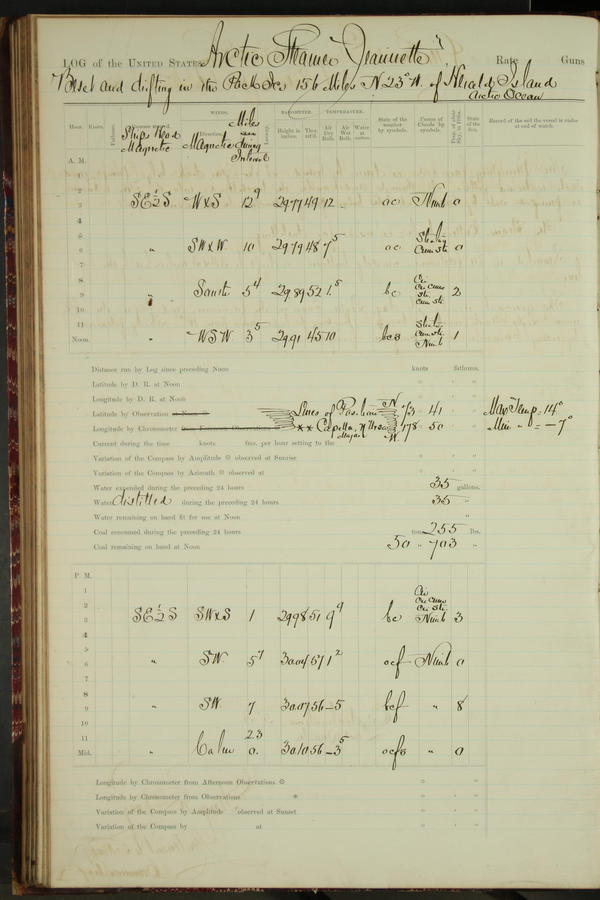 LOG of the UNITED STATES Arctic Steamer "Jeannette" Rate Guns
Beset and drifting in the Pack Ice 156 Miles N 23° W. of Herald Island
Arctic Ocean
Hour. Knots. Fathoms. Ship's Head Magnetic WINDS. Direction. Magnetic Miles during Interval Leeway. BAROMETER. Height in inches. Ther. att'd. TEMPERATURE. Air Dry Bulb. Air Wet Bulb. Water at surface. State of the weather by symbols. Forms of Clouds by symbols. State of the Sea. Record of the sail the vessel is under at end of watch.
A. M.
1
2
3 SE½S WxS 12⁹ 29.77 49 12 oc Nimb 0
4
5
6 " SWxW 10 29.79 48 7⁵ oc Cum str. 0
7
8
9 " South 5⁴ 29.89 52 1.⁵ bc Cir Cir cum Str. Cum str. 2
10
11
Noon. " WSW 3⁵ 29.91 45 10 bcs Cum str. Nimb 1
Distance run by Log since preceding Noon knots fathoms.
Latitude by D. R. at Noon
Longitude by D. R. at Noon
Latitude by Observation Lines of Position N 73 41 Max Temp = 14°
Longitude by Chronometer ** Capella, η Ursae Major W. 178 50 Min " = -7°
Current during the time knots fms. per hour setting to the
Variation of the Compass by Amplitude ⊙ observed at Sunrise
Variation of the Compass by Azimuth ⊙ observed at
Water expended during the preceding 24 hours 35 gallons.
Water distilled during the preceding 24 hours 35 "
Water remaining on hand fit for use at Noon "
Coal consumed during the preceding 24 hours tons 255 lbs.
Coal remaining on hand at Noon 50 " 703 "
P. M.
1
2
3 SE½S SWxS 1 29.98 51 9⁹ bc Cir Cir cum Cir str. Nimb 3
4
5
6 " SW. 5⁷ 30.04 57 1² ocf Nimb 0
7
8
9 " SW. 7 30.07 56 -5 bcf " 8
10
11
Mid. " Calm 0. 23 30.10 56 -3⁵ ocfs " 0
Longitude by Chronometer from Afternoon Observations ⊙
Longitude by Chronometer from Observations *
Variation of the Compass by Amplitude observed at Sunset
Variation of the Compass by at